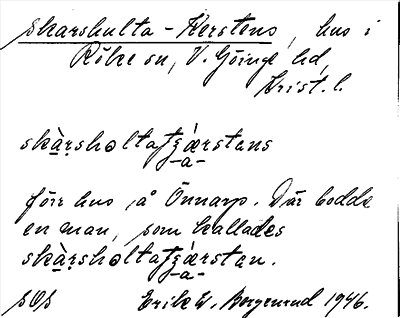 Skarshulta-Kerstens, hus i
Röke sn, V. Göinge hd,
Krist. l.
skàrsholtatʒærstans
-a-
förr hus på Önnarp. Där bodde
en man, som kallades
skàrsholtatʒærsten.
-a-
SOS Erik W. Bergenrud 1946.